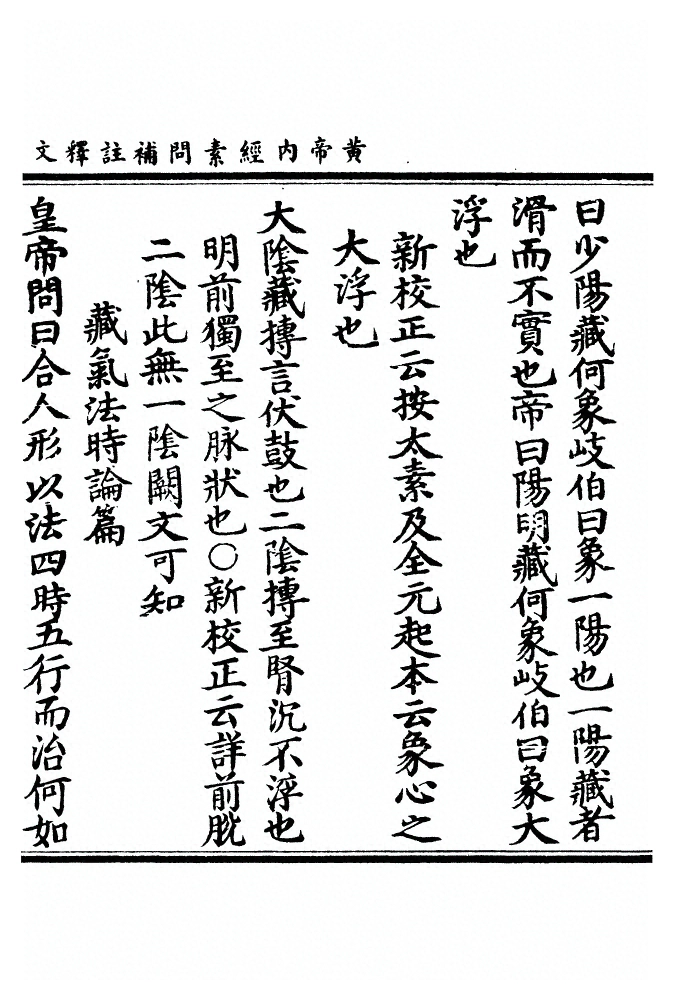 黄帝內經素問補註釋文
曰少陽藏何象岐伯曰象一陽也一陽藏者
滑而不實也帝曰陽明藏何象岐伯曰象大
浮也
新校正云按太素及全元起本云象心之
大浮也
大陰藏摶言伏鼓也二陰摶至腎沉不浮也
明前獨至之脉狀也〇新校正云詳前脫
二陰此無一陰闕文可知
藏氣法時論篇
皇帝問曰合人形以法四時五行而治何如